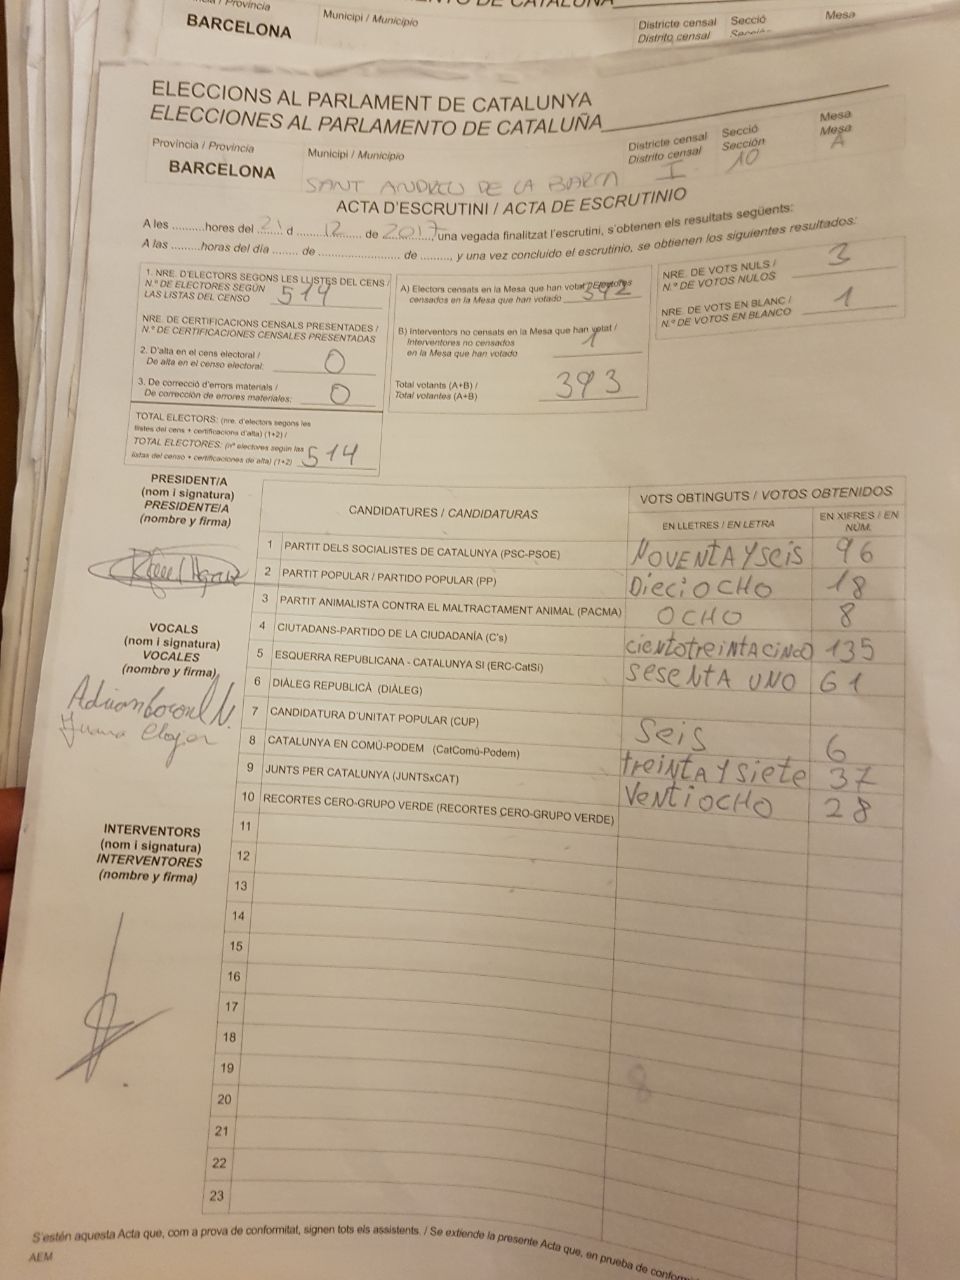 BARCELONA
Municipi / Municipio
Districte censal
Distrito censal
Secció
Mesa
ELECCIONS AL PARLAMENT DE CATALUNYA
ELECCIONES AL PARLAMENTO DE CATALUÑA
Província / Provincia
BARCELONA
Municipi / Municipio
SANT ANDREU DE LA BARCA
Districte censal
Distrito censal
I
Secció
Sección
10
Mesa
Mesa
A
ACTA D'ESCRUTINI / ACTA DE ESCRUTINIO
A les ..........hores del 21 d 12 de 2017, una vegada finalitzat l'escrutini, s'obtenen els resultats següents:
A las .........horas del día ........ de ........................... de .........., y una vez concluido el escrutinio, se obtienen los siguientes resultados:
1. NRE. D'ELECTORS SEGONS LES LLISTES DEL CENS /
N.º DE ELECTORES SEGÚN
LAS LISTAS DEL CENSO
514
NRE. DE CERTIFICACIONS CENSALS PRESENTADES /
N.º DE CERTIFICACIONES CENSALES PRESENTADAS
2. D'alta en el cens electoral /
De alta en el censo electoral:
0
3. De correcció d'errors materials /
De corrección de errores materiales:
0
TOTAL ELECTORS: (nre. d'electors segons les
llistes del cens + certificacions d'alta) (1+2) /
TOTAL ELECTORES: (nº electores según las
listas del censo + certificaciones de alta) (1+2)
514
A) Electors censats en la Mesa que han votat / Electores
censados en la Mesa que han votado
392
B) Interventors no censats en la Mesa que han votat /
Interventores no censados
en la Mesa que han votado
1
Total votants (A+B) /
Total votantes (A+B)
393
NRE. DE VOTS NULS /
N.º DE VOTOS NULOS
3
NRE. DE VOTS EN BLANC /
N.º DE VOTOS EN BLANCO
1
PRESIDENT/A
(nom i signatura)
PRESIDENTE/A
(nombre y firma)
VOCALS
(nom i signatura)
VOCALES
(nombre y firma)
INTERVENTORS
(nom i signatura)
INTERVENTORES
(nombre y firma)
CANDIDATURES / CANDIDATURAS
VOTS OBTINGUTS / VOTOS OBTENIDOS
EN LLETRES / EN LETRA
EN XIFRES / EN NÚM.
1 PARTIT DELS SOCIALISTES DE CATALUNYA (PSC-PSOE) NOVENTA Y SEIS 96
2 PARTIT POPULAR / PARTIDO POPULAR (PP) DIECIOCHO 18
3 PARTIT ANIMALISTA CONTRA EL MALTRACTAMENT ANIMAL (PACMA) OCHO 8
4 CIUTADANS-PARTIDO DE LA CIUDADANÍA (C's) CIENTOTREINTACINCO 135
5 ESQUERRA REPUBLICANA - CATALUNYA SI (ERC-CatSí) SESENTA UNO 61
6 DIÀLEG REPUBLICÀ (DIÀLEG)
7 CANDIDATURA D'UNITAT POPULAR (CUP) SEIS 6
8 CATALUNYA EN COMÚ-PODEM (CatComú-Podem) TREINTA Y SIETE 37
9 JUNTS PER CATALUNYA (JUNTSxCAT) VENTIOCHO 28
10 RECORTES CERO-GRUPO VERDE (RECORTES CERO-GRUPO VERDE)
11
12
13
14
15
16
17
18
19
20
21
22
23
S'estén aquesta Acta que, com a prova de conformitat, signen tots els assistents. / Se extiende la presente Acta que, en prueba de
AEM